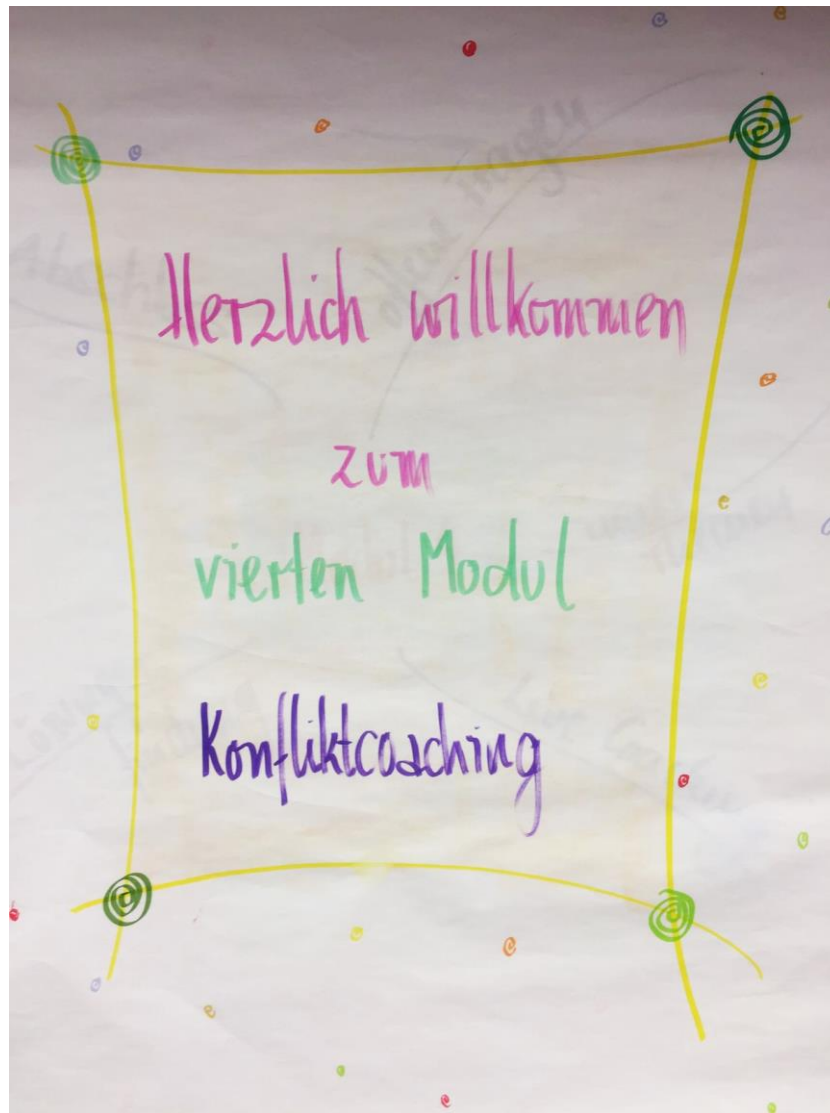 Herzlich willkommen
zum
vierten Modul
Konfliktcoaching